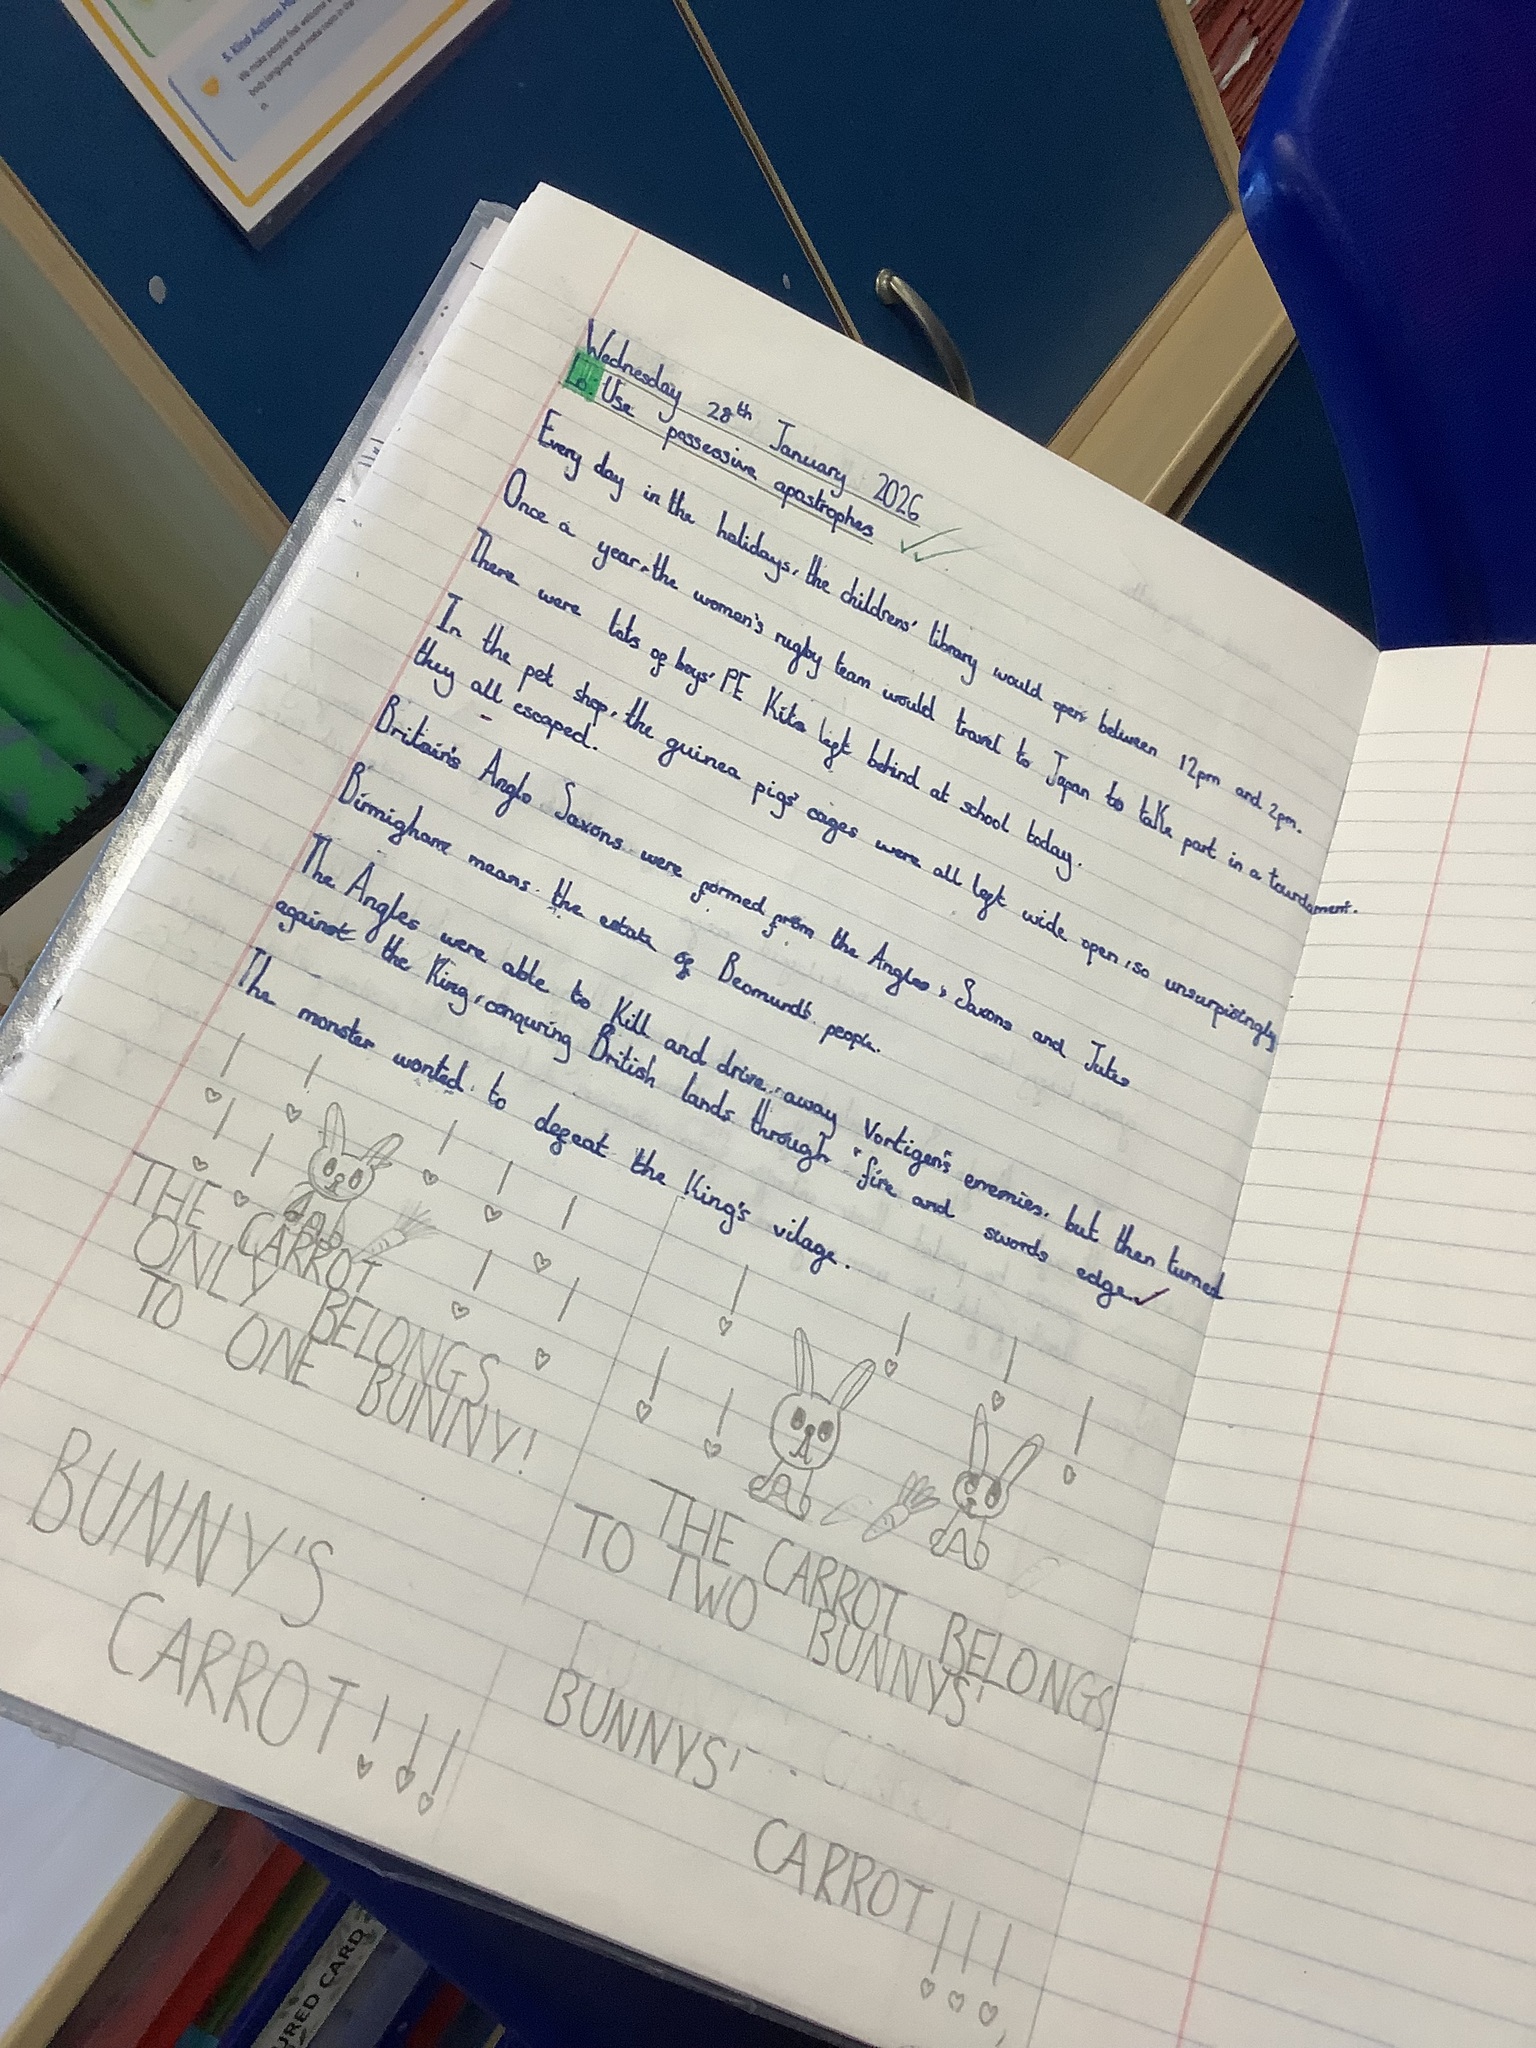 5. Kind Actions
We make people feel welcome
body language and make room in the
Wednesday 28th January 2026
Lo: Use possessive apostrophes
Every day in the holidays, the childrens' library would open between 12pm and 2pm.
Once a year, the women's rugby team would travel to Japan to take part in a tourdament.
There were lots of boys' PE Kits left behind at school today.
In the pet shop, the guinea pigs' cages were all left wide open, so unsurpisingly
they all escaped.
Britain's Anglo Saxons were formed from the Angles, Saxons and Jutes
Birmigham means the estate of Beomund's people.
The Angles were able to Kill and drive away Vortigen's enemies, but then turned
against the King, conquring British lands through "fire and swords edge.
The monster wonted to defeat the King's vilage.
THE CARROT
ONLY BELONGS
TO ONE BUNNY!
BUNNY'S
CARROT!!!
THE CARROT BELONGS
TO TWO BUNNYS'
BUNNYS'
CARROT!!!
URED CARD